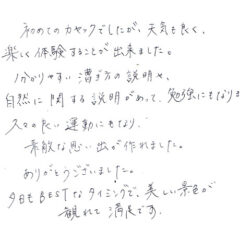 初めてのカヤックでしたが、天気も良く、
楽しく体験することが出来ました。
分かりやすい漕ぎ方の説明や、
自然に関する説明があって、勉強にもなりま
久々の良い運動にもなり、
素敵な思い出が作れました。
ありがとうございました。
今日もBESTなタイミングで、美しい景色が
観れて満足です。